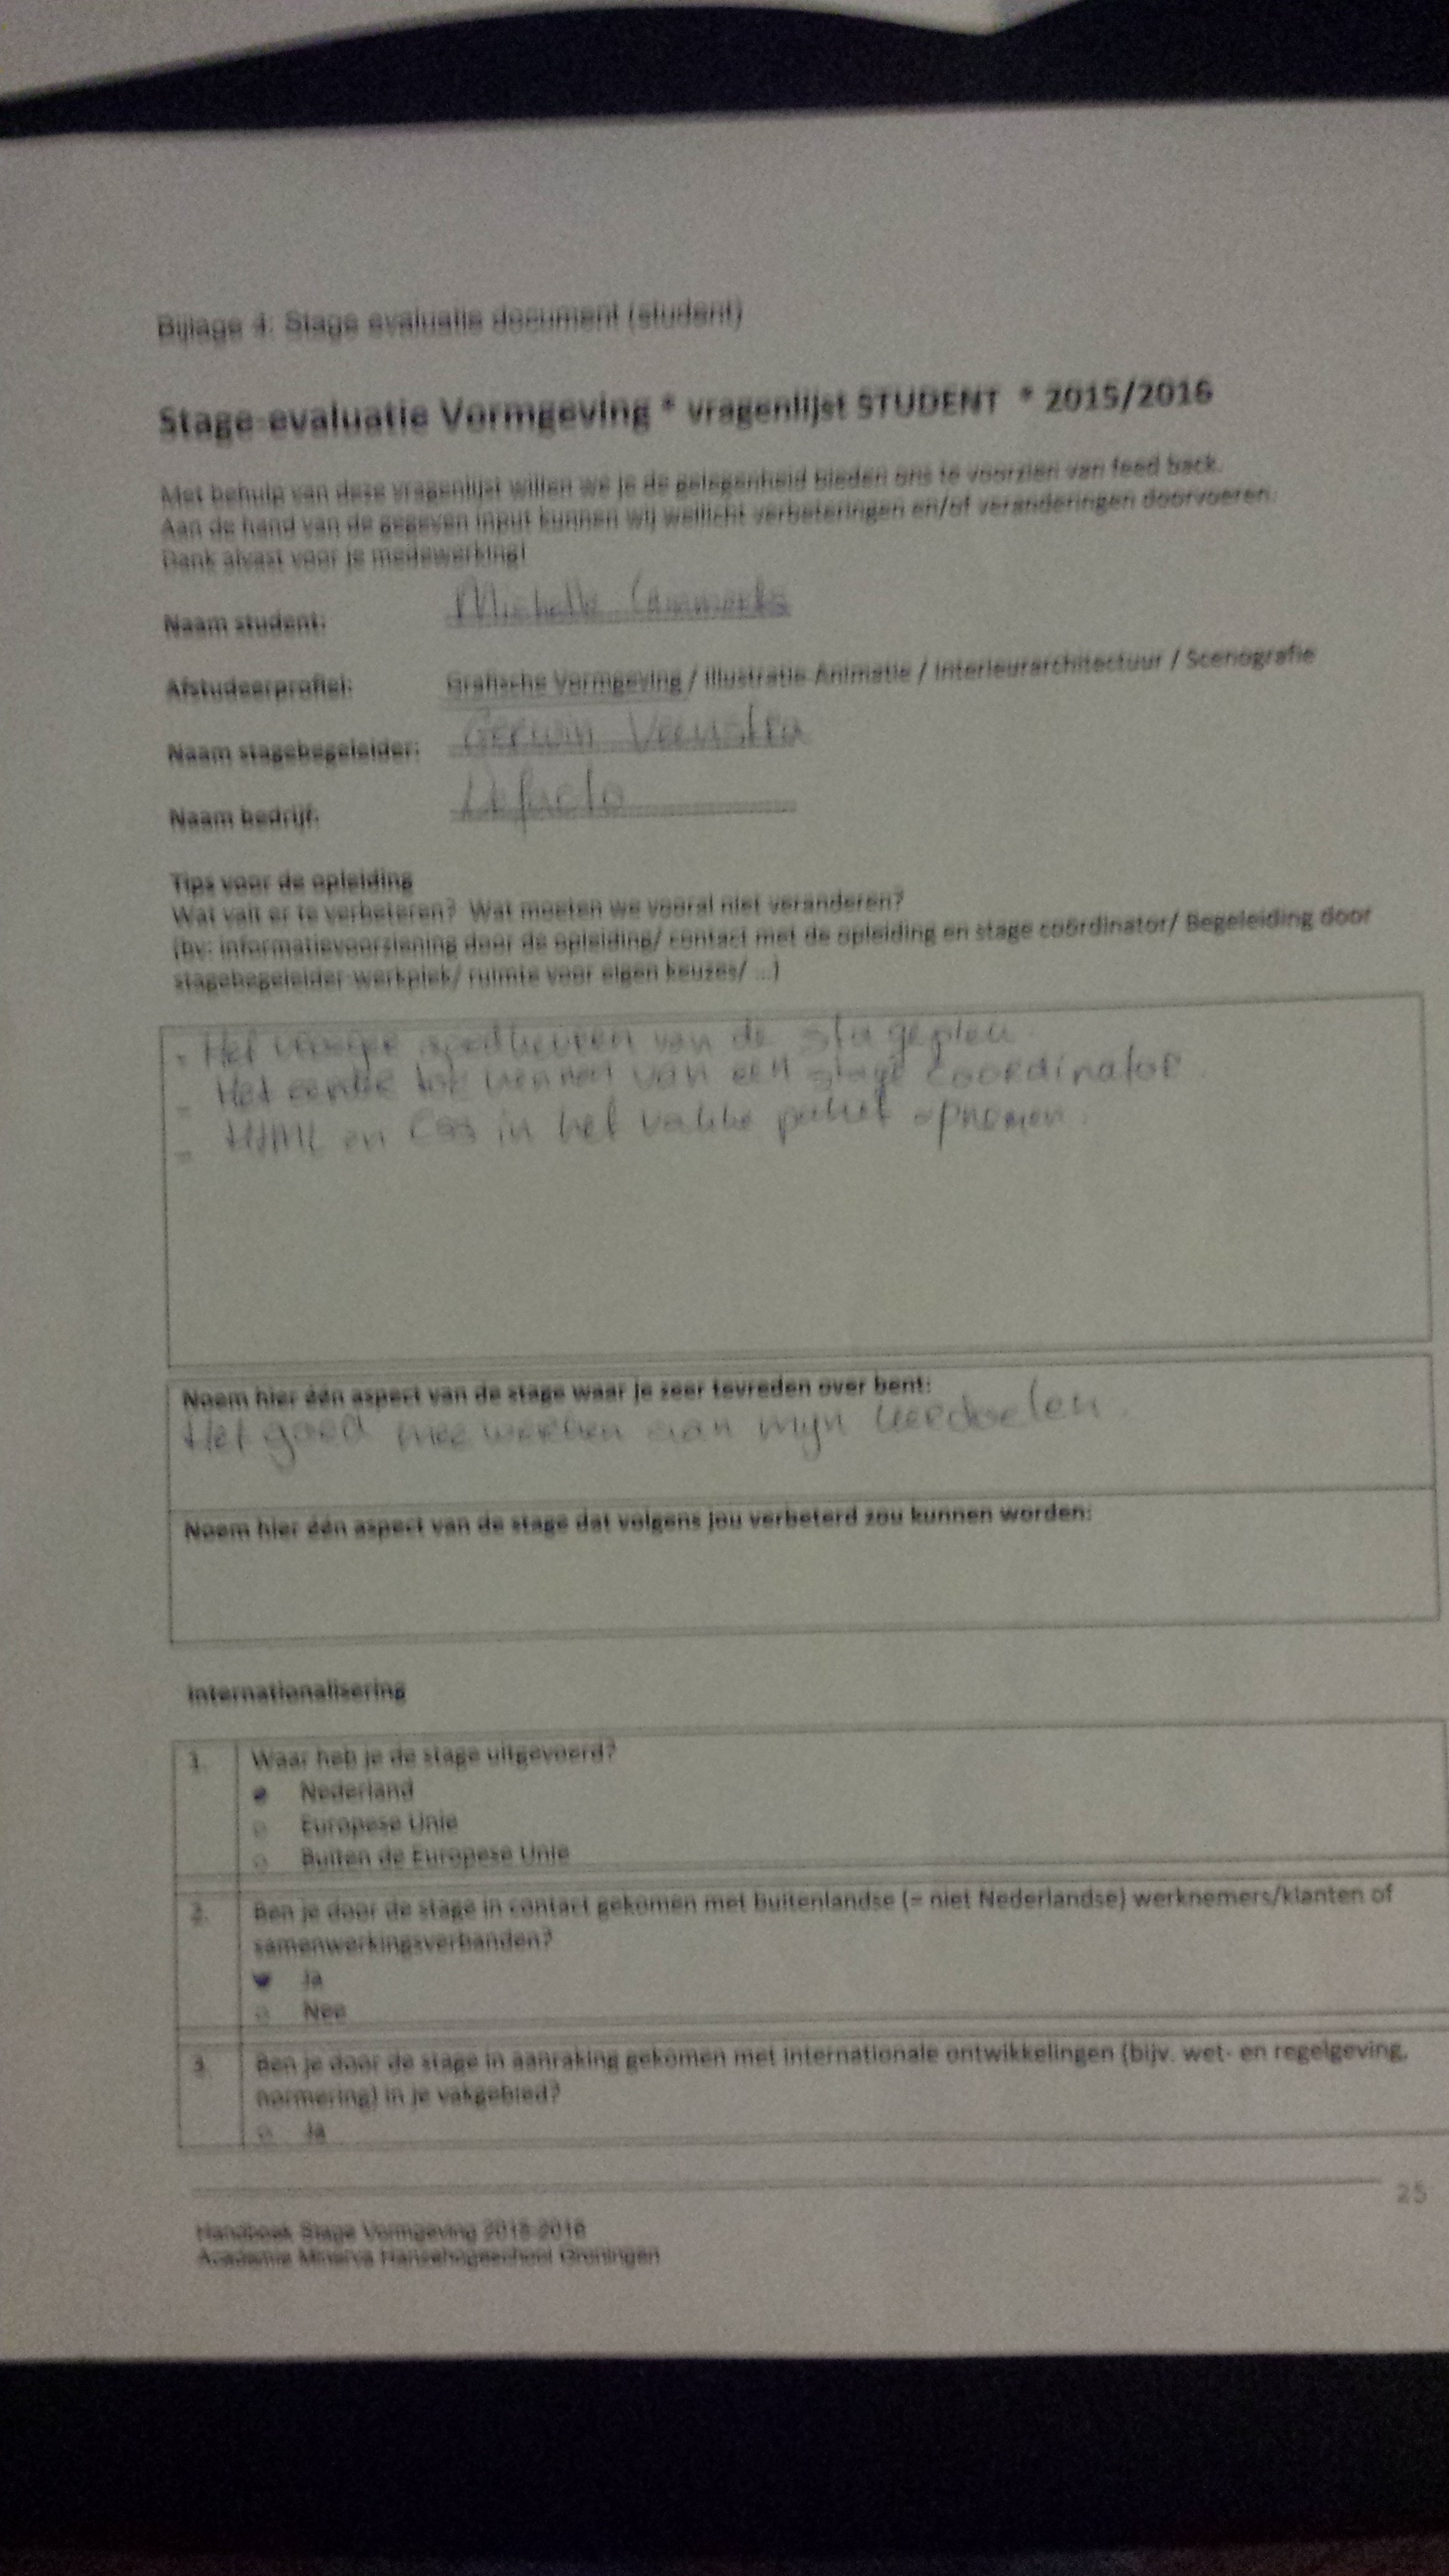 Bijlage 4: Stage evaluatie document (student)
Stage-evaluatie Vormgeving * vragenlijst STUDENT * 2015/2016
Met behulp van deze vragenlijst willen we je de gelegenheid bieden ons te voorzien van feed back.
Aan de hand van de gegeven input kunnen wij wellicht verbeteringen en/of veranderingen doorvoeren.
Dank alvast voor je medewerking!
Naam student: Michelle
Afstudeerprofiel: Grafische Vormgeving / Illustratie Animatie / Interieurarchitectuur / Scenografie
Naam stagebegeleider: Gerwin Veenstra
Naam bedrijf: Defacto
Tips voor de opleiding
Wat valt er te verbeteren? Wat moeten we vooral niet veranderen?
(bv: informatievoorziening door de opleiding/ contact met de opleiding en stage coördinator/ Begeleiding door
stagebegeleider werkplek/ ruimte voor eigen keuzes/ ...)
- Het goedkeuren van de stageplek
- Het van een stage coordinator.
- HTML en CSS in het vakke pakket opnemen.
Noem hier één aspect van de stage waar je zeer tevreden over bent:
Het goed mee werken aan mijn leerdoelen.
Noem hier één aspect van de stage dat volgens jou verbeterd zou kunnen worden:
Internationalisering
1. Waar heb je de stage uitgevoerd?
Nederland
Europese Unie
Buiten de Europese Unie
2. Ben je door de stage in contact gekomen met buitenlandse (= niet Nederlandse) werknemers/klanten of
samenwerkingsverbanden?
Ja
Nee
3. Ben je door de stage in aanraking gekomen met internationale ontwikkelingen (bijv. wet- en regelgeving,
normering) in je vakgebied?
Ja
25
Handboek Stage Vormgeving 2015-2016
Academie Minerva Hanzehogeschool Groningen